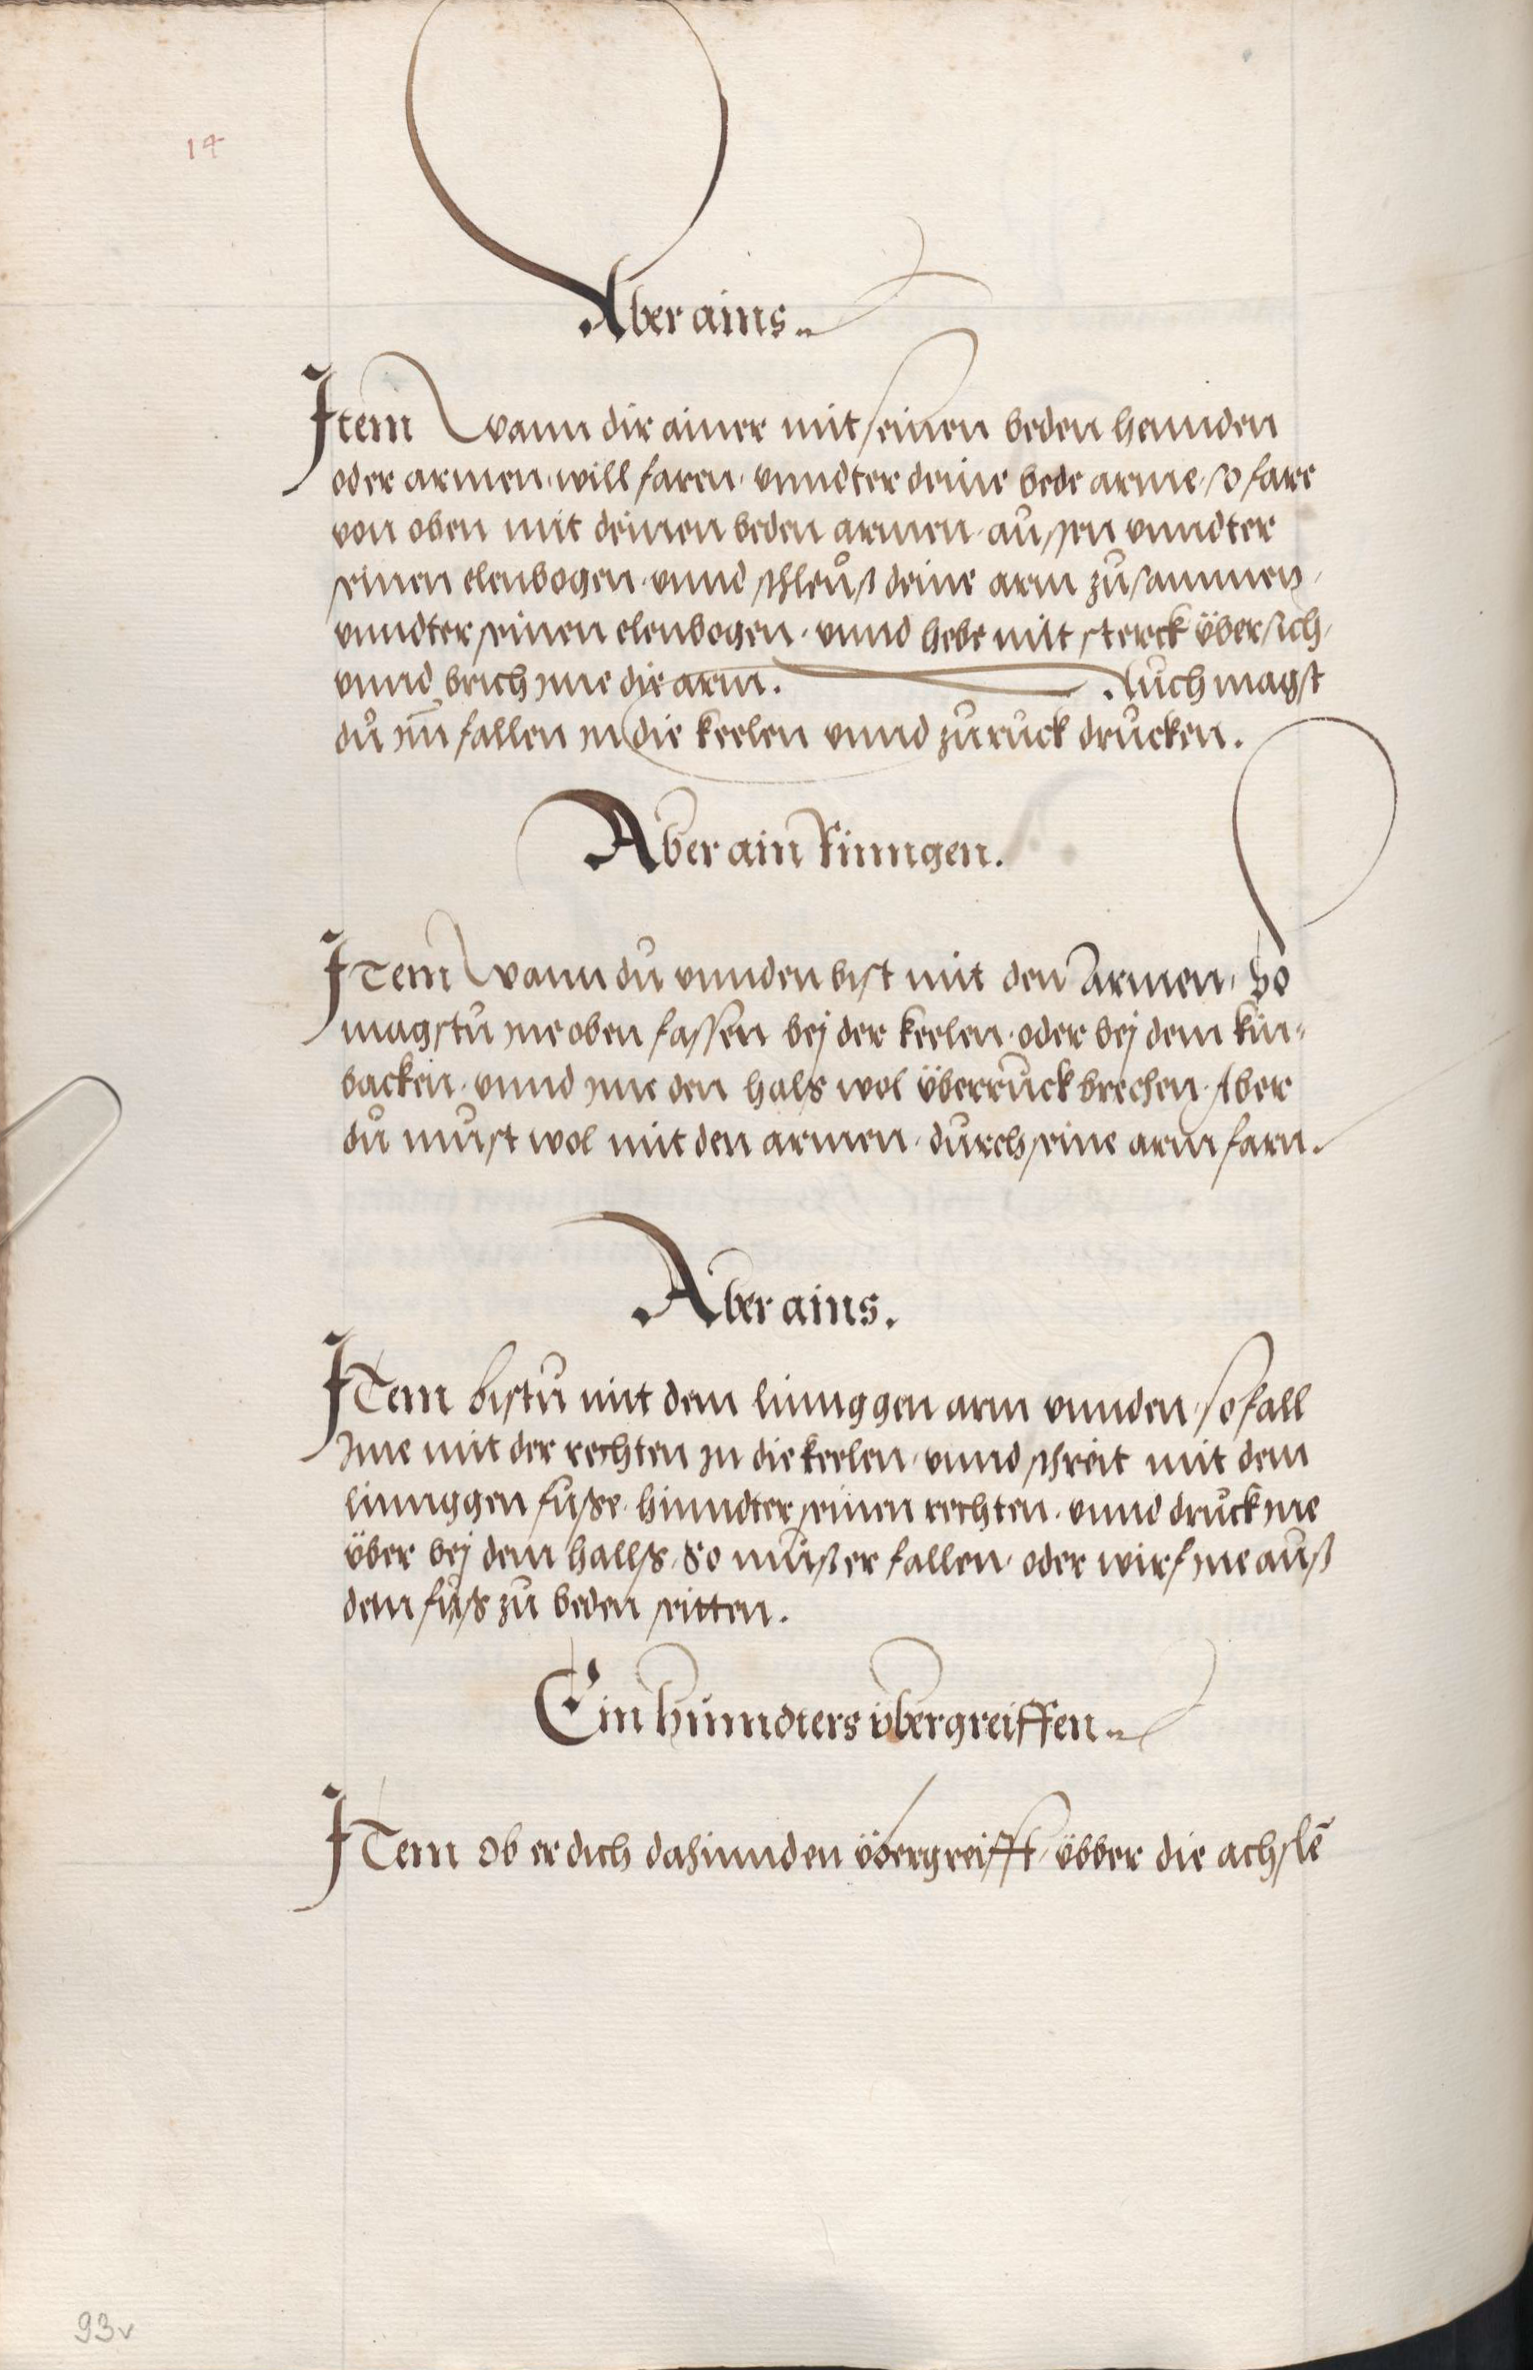 14
Aber ains.
Item wann dir ainer mit seinen beden hennden
oder armen, will faren, vnndter deine bede arme, so fare
von oben mit deinen beden armen, aussen vnndter
seinen elenbogen, vnnd schleŭß deine arm zůsammen,
vnndter seinen elenbogen, vnnd hebe mit sterck übersich,
vnnd brich jme die arm. Aŭch magst
dŭ jm̄ fallen jn die keelen vnnd zůrŭck drŭcken.
Aber ain Ringen.
Item wann dŭ vnnden bist mit den Armen, So
magstŭ jne oben fassen bej der keelen, oder bej dem kin-
backen, vnnd jme den hals wol überrŭck brechen, Aber
dŭ mŭst wol mit den armen, dŭrch seine arm farn.
Aber ains.
Item bistŭ mit dem linnggen arm vnnden, so fall
Jme mit der rechten jn die keelen, vnnd schreit mit dem
linnggen fŭße, hinndter seinen rechten, vnnd drŭck jne
über bej dem hallß, So mŭß er fallen, oder wirf jne aŭß
dem fŭß zŭ beden seitten.
Ein hinndters übergreiffen.
Item ob er dich dahinnden übergreifft, übber die achslē
93v